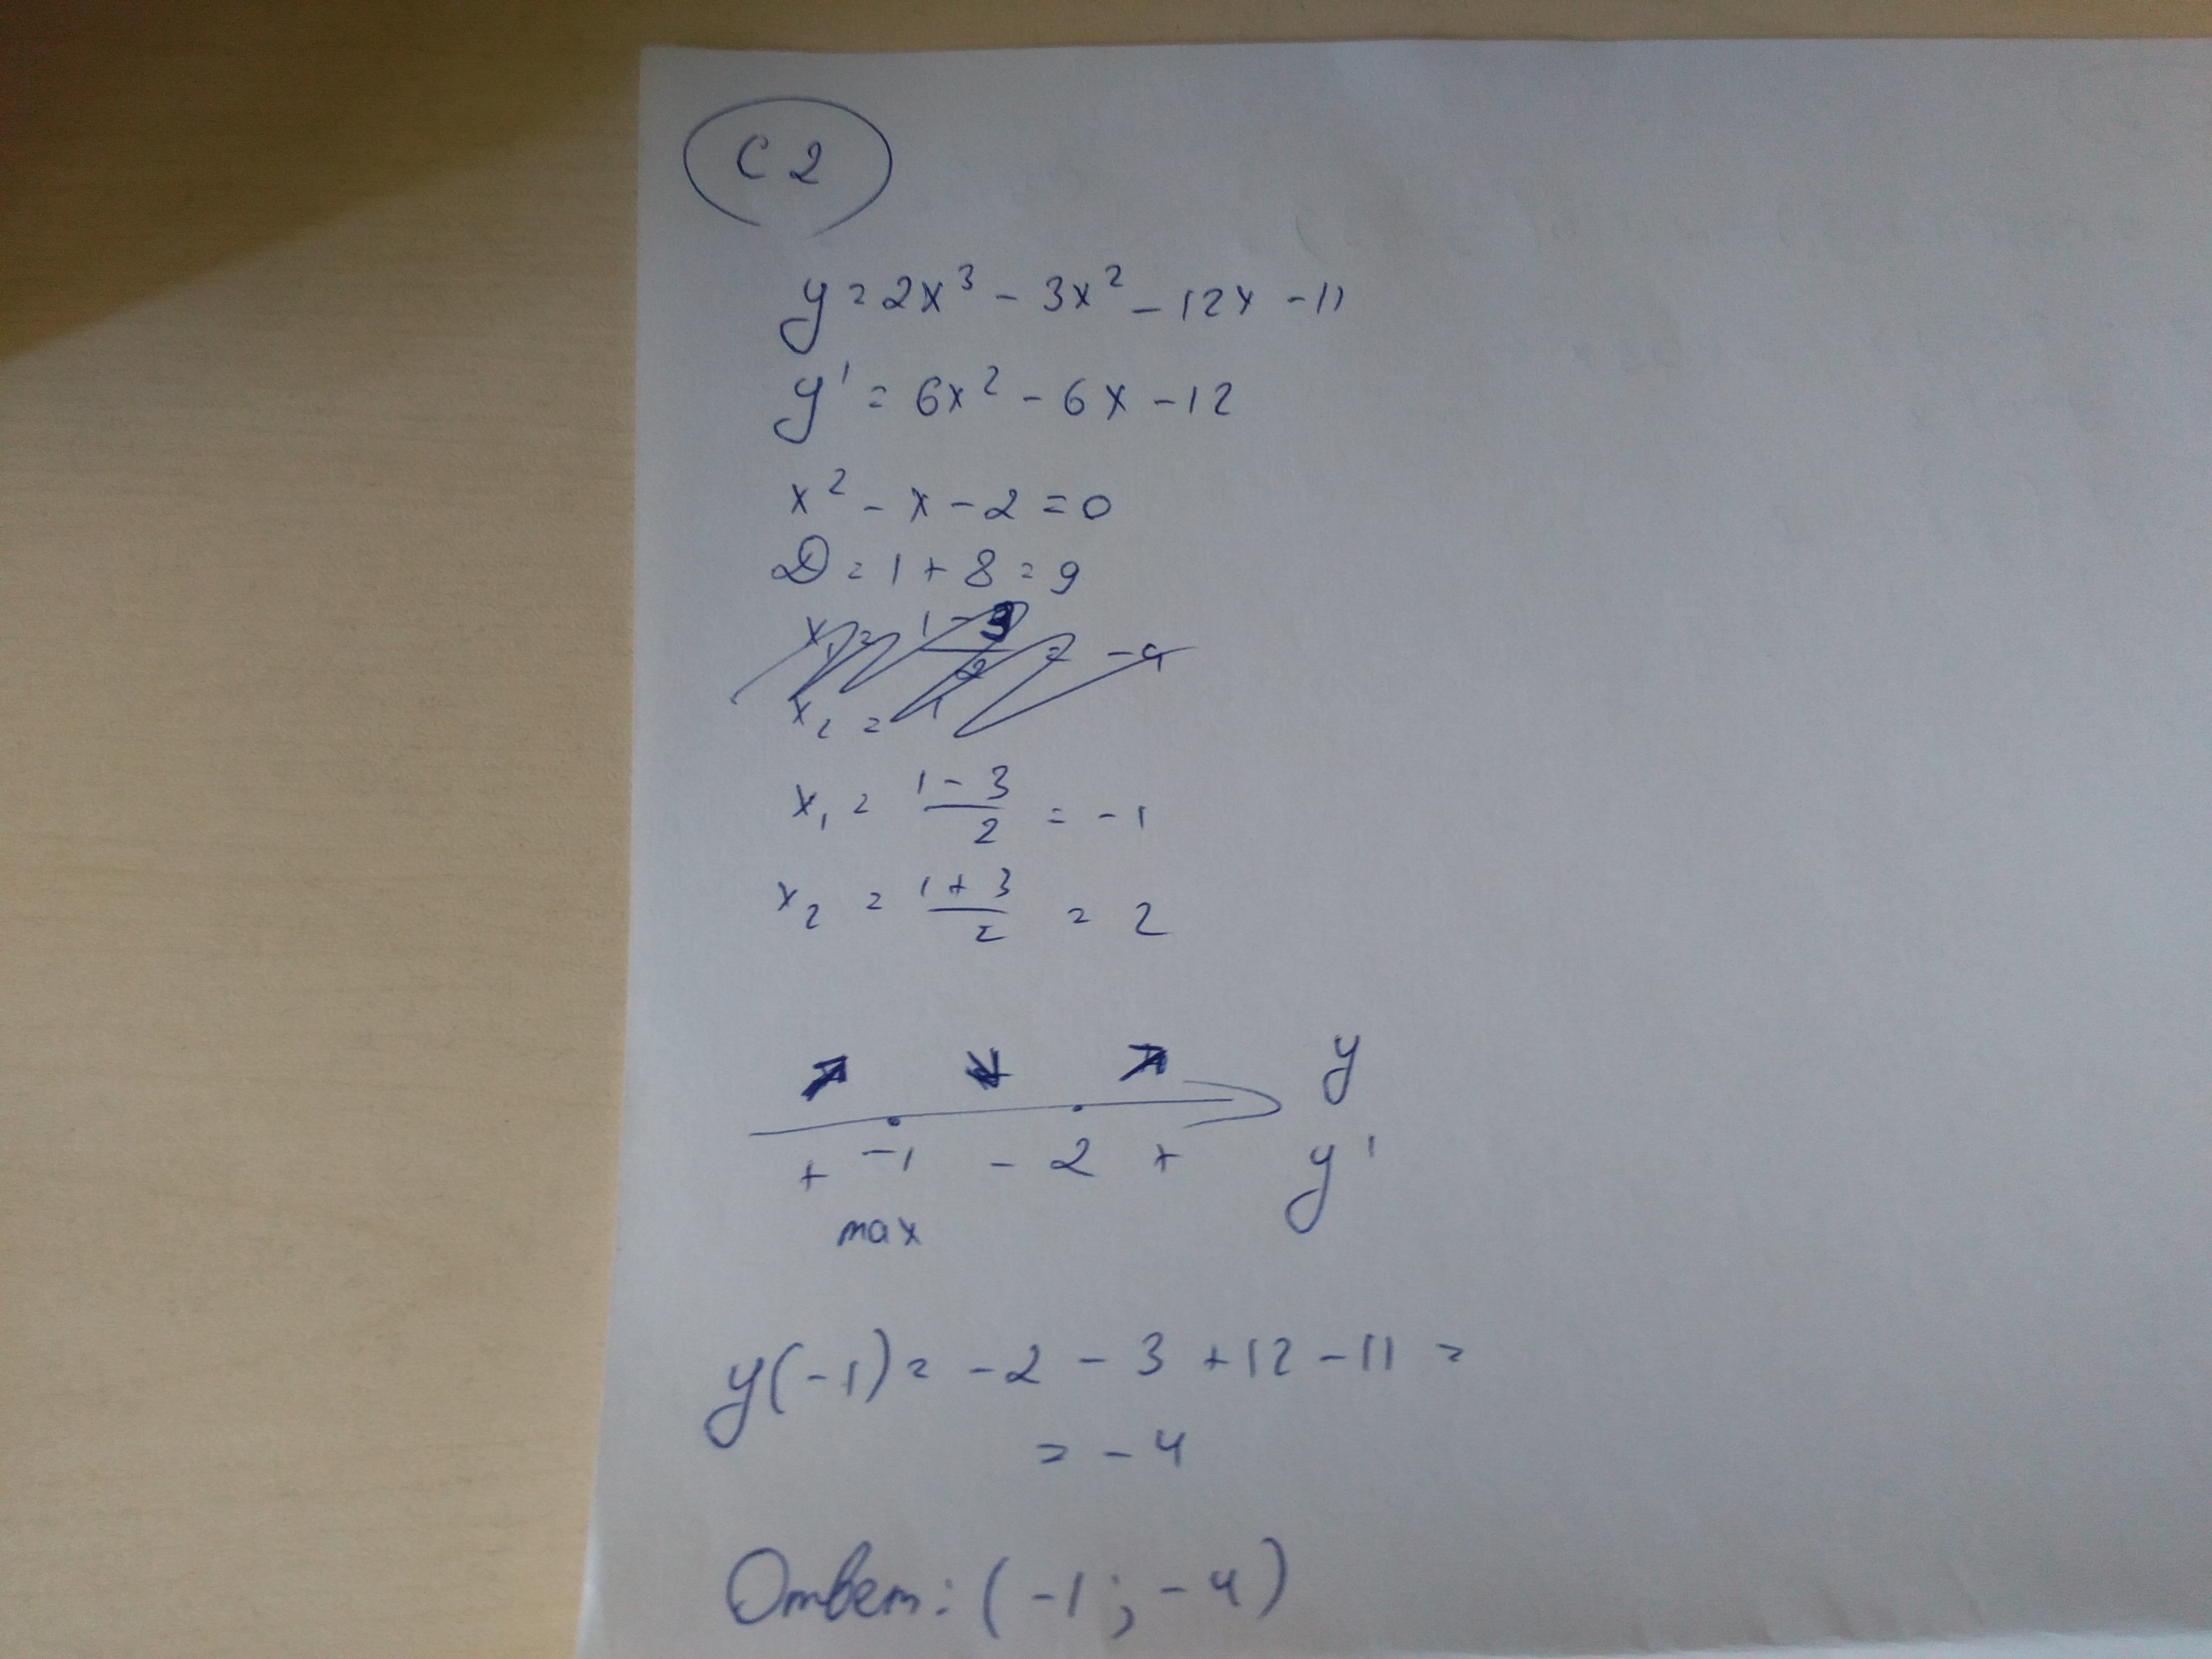 C 2
y = 2x³ - 3x² - 12x - 11
y' = 6x² - 6x - 12
x² - x - 2 = 0
D = 1 + 8 = 9
x₁ = (1 - 3)/2 = -1
x₂ = (1 + 3)/2 = 2
y
+ -1 - 2 + y'
max
y(-1) = -2 - 3 + 12 - 11 =
= -4
Ответ: (-1; -4)